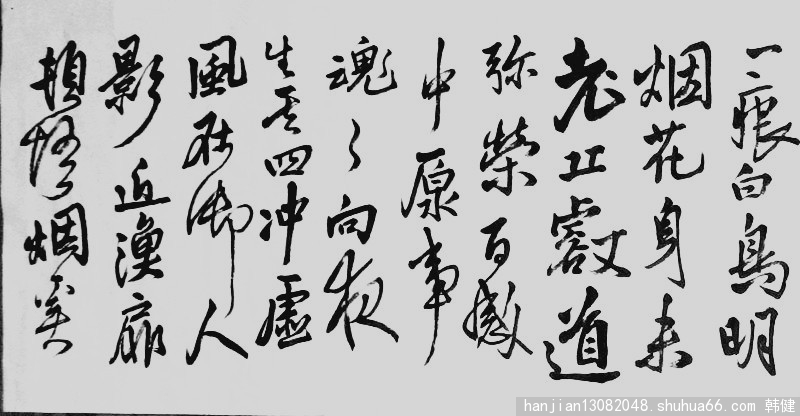 一痕白鳥明
烟花身未
老丘壑道
弥榮百感
中原事
魂向夜
生四冲虚
風御人
影近漁扉
頓烟
hanjian13082048.shuhua66.com 韩健